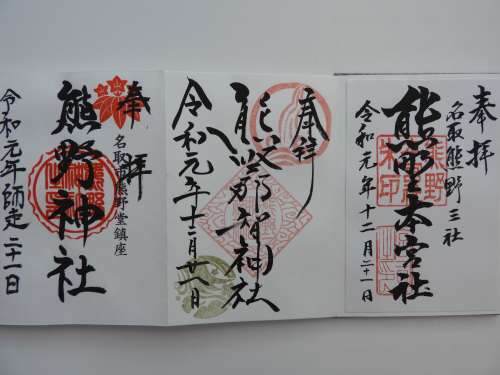 奉拝
名取熊野三社
熊野本宮社
令和元年十二月二十一日
奉拝
熊野那智神社
令和元年十二月廿一日
奉拝
名取市熊野堂鎮座
熊野神社
令和元年師走二十一日